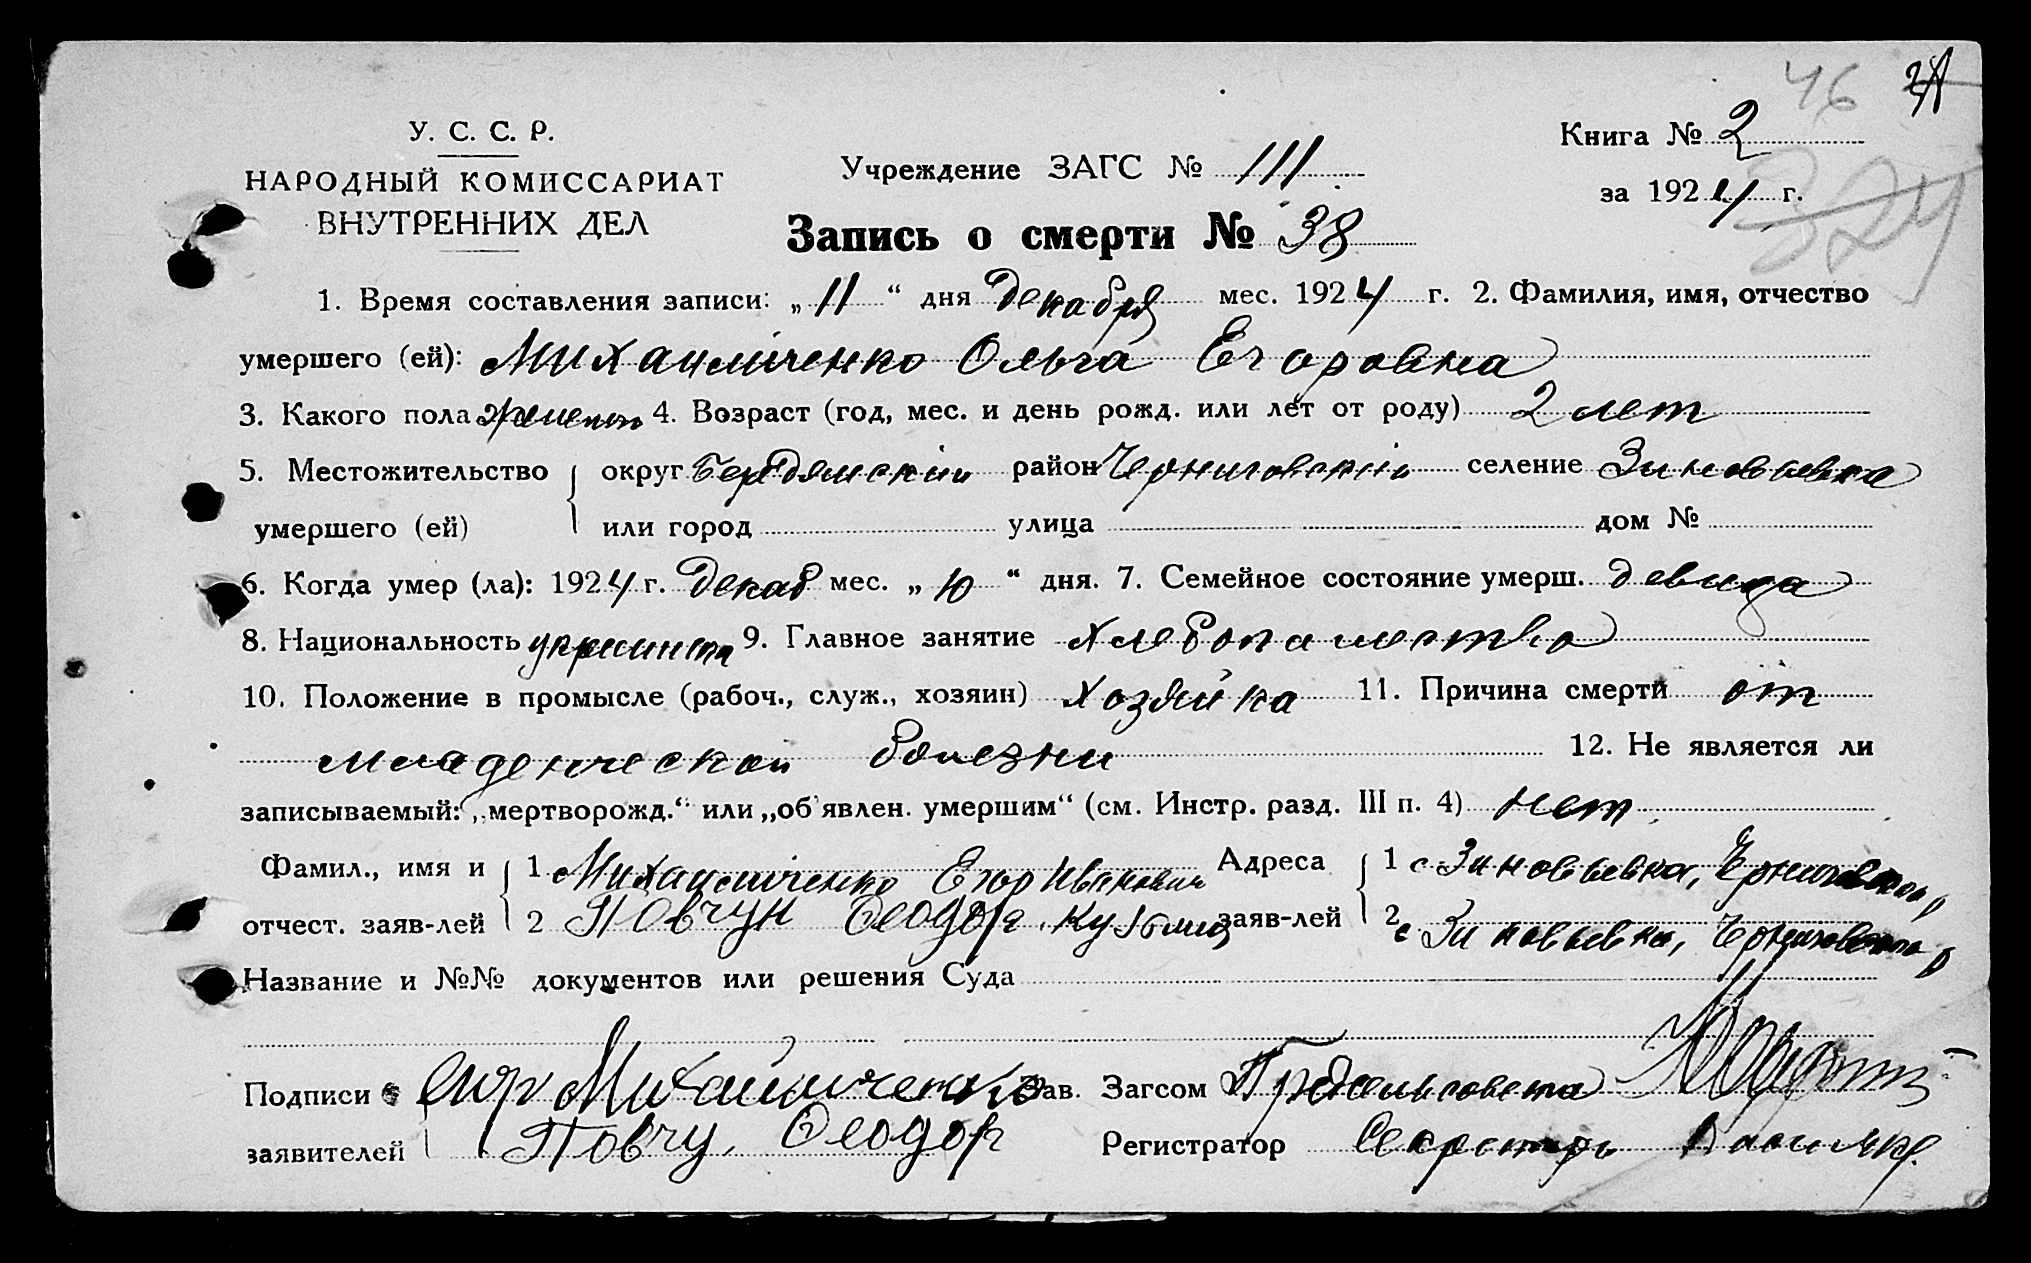 46
У. С. С. Р.
НАРОДНЫЙ КОМИССАРИАТ
ВНУТРЕННИХ ДЕЛ
Учреждение ЗАГС № 111
Книга № 2
за 1924 г.
324
Запись о смерти № 38
1. Время составления записи: „ 11 “ дня Декабря мес. 1924 г. 2. Фамилия, имя, отчество
умершего (ей): Михайличенко Ольга Егоровна
3. Какого пола 4. Возраст (год, мес. и день рожд. или лет от роду) 2 лет
5. Местожительство округ Бердянский район Черниговский селение Зиновьевка
умершего (ей) или город улица дом №
6. Когда умер (ла): 1924 г. Декаб мес. „ 10 “ дня. 7. Семейное состояние умерш. девица
8. Национальность 9. Главное занятие Хлебопашество
10. Положение в промысле (рабоч., служ., хозяин) Хозяйка 11. Причина смерти от
младенческой болезни 12. Не является ли
записываемый: „мертворожд.“ или „об'явлен. умершим“ (см. Инстр. разд. III п. 4) нет
Фамил., имя и 1 Михайличенко Егор Иванович Адреса 1 с Зиновьевка,
отчест. заяв-лей 2 Повчун Феодор заяв-лей 2 с Зиновьевка,
Название и №№ документов или решения Суда
Подписи Михайличенко Зав. Загсом
заявителей Повчу. Феодор Регистратор Секретарь